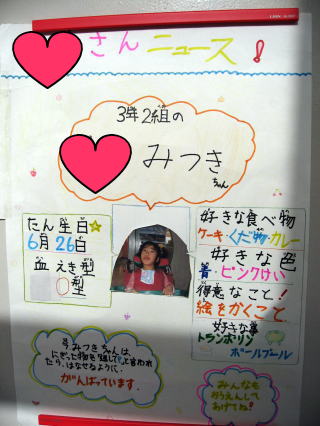 さんニュース!
3年2組の
みつき
ちゃん
たん生日
6月26日
血えき型
O型
好きな食べ物
ケーキ・くだ物・カレー
好きな色
青・ピンクけい
得意なこと!
絵をかくこと
好きな事
トランポリン
ボールプール
今、みつきちゃんは、
にぎった物を「と言われ
たら、はなせるように、
がんばっています。
みんなも
おうえんして
あげてね!